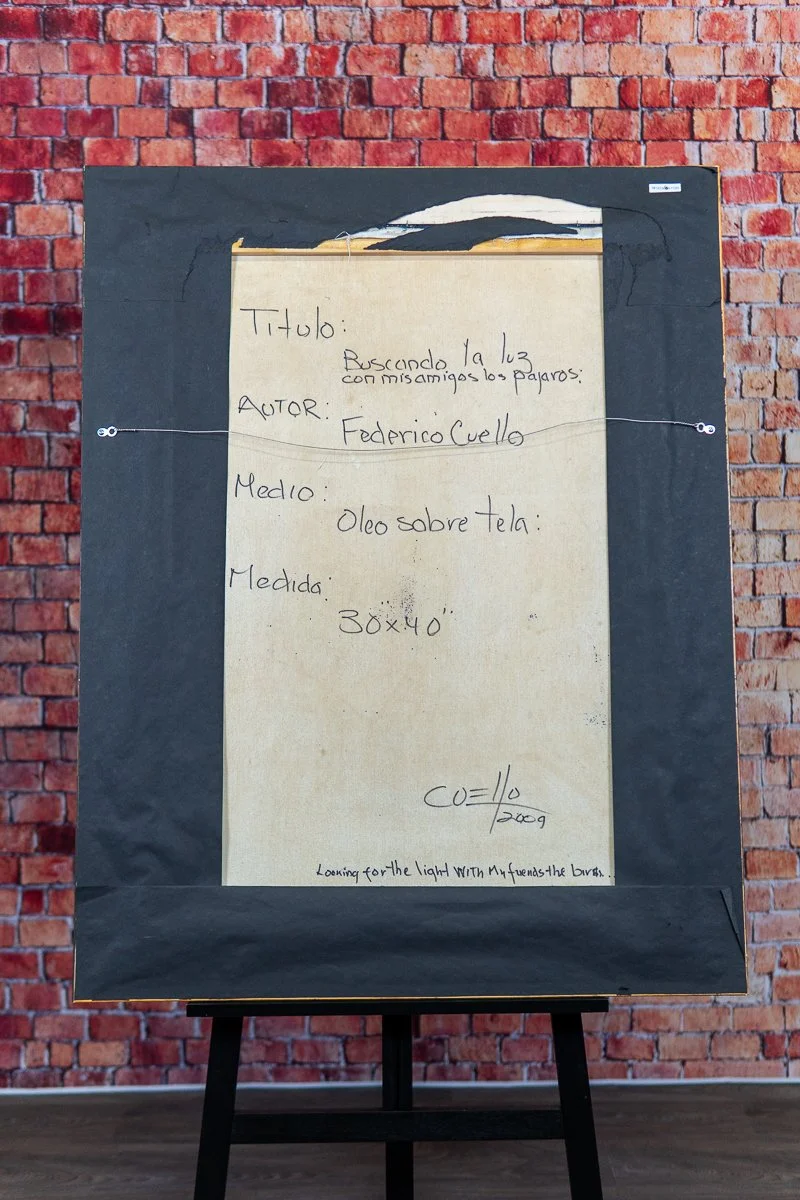 Titulo:
Buscando la luz
con mis amigos los pajaros:
AUTOR:
Federico Cuello
Medio:
Oleo sobre tela:
Medida:
30x40"
CUEllo
2009
Looking for the light WITH My fuends the birds..